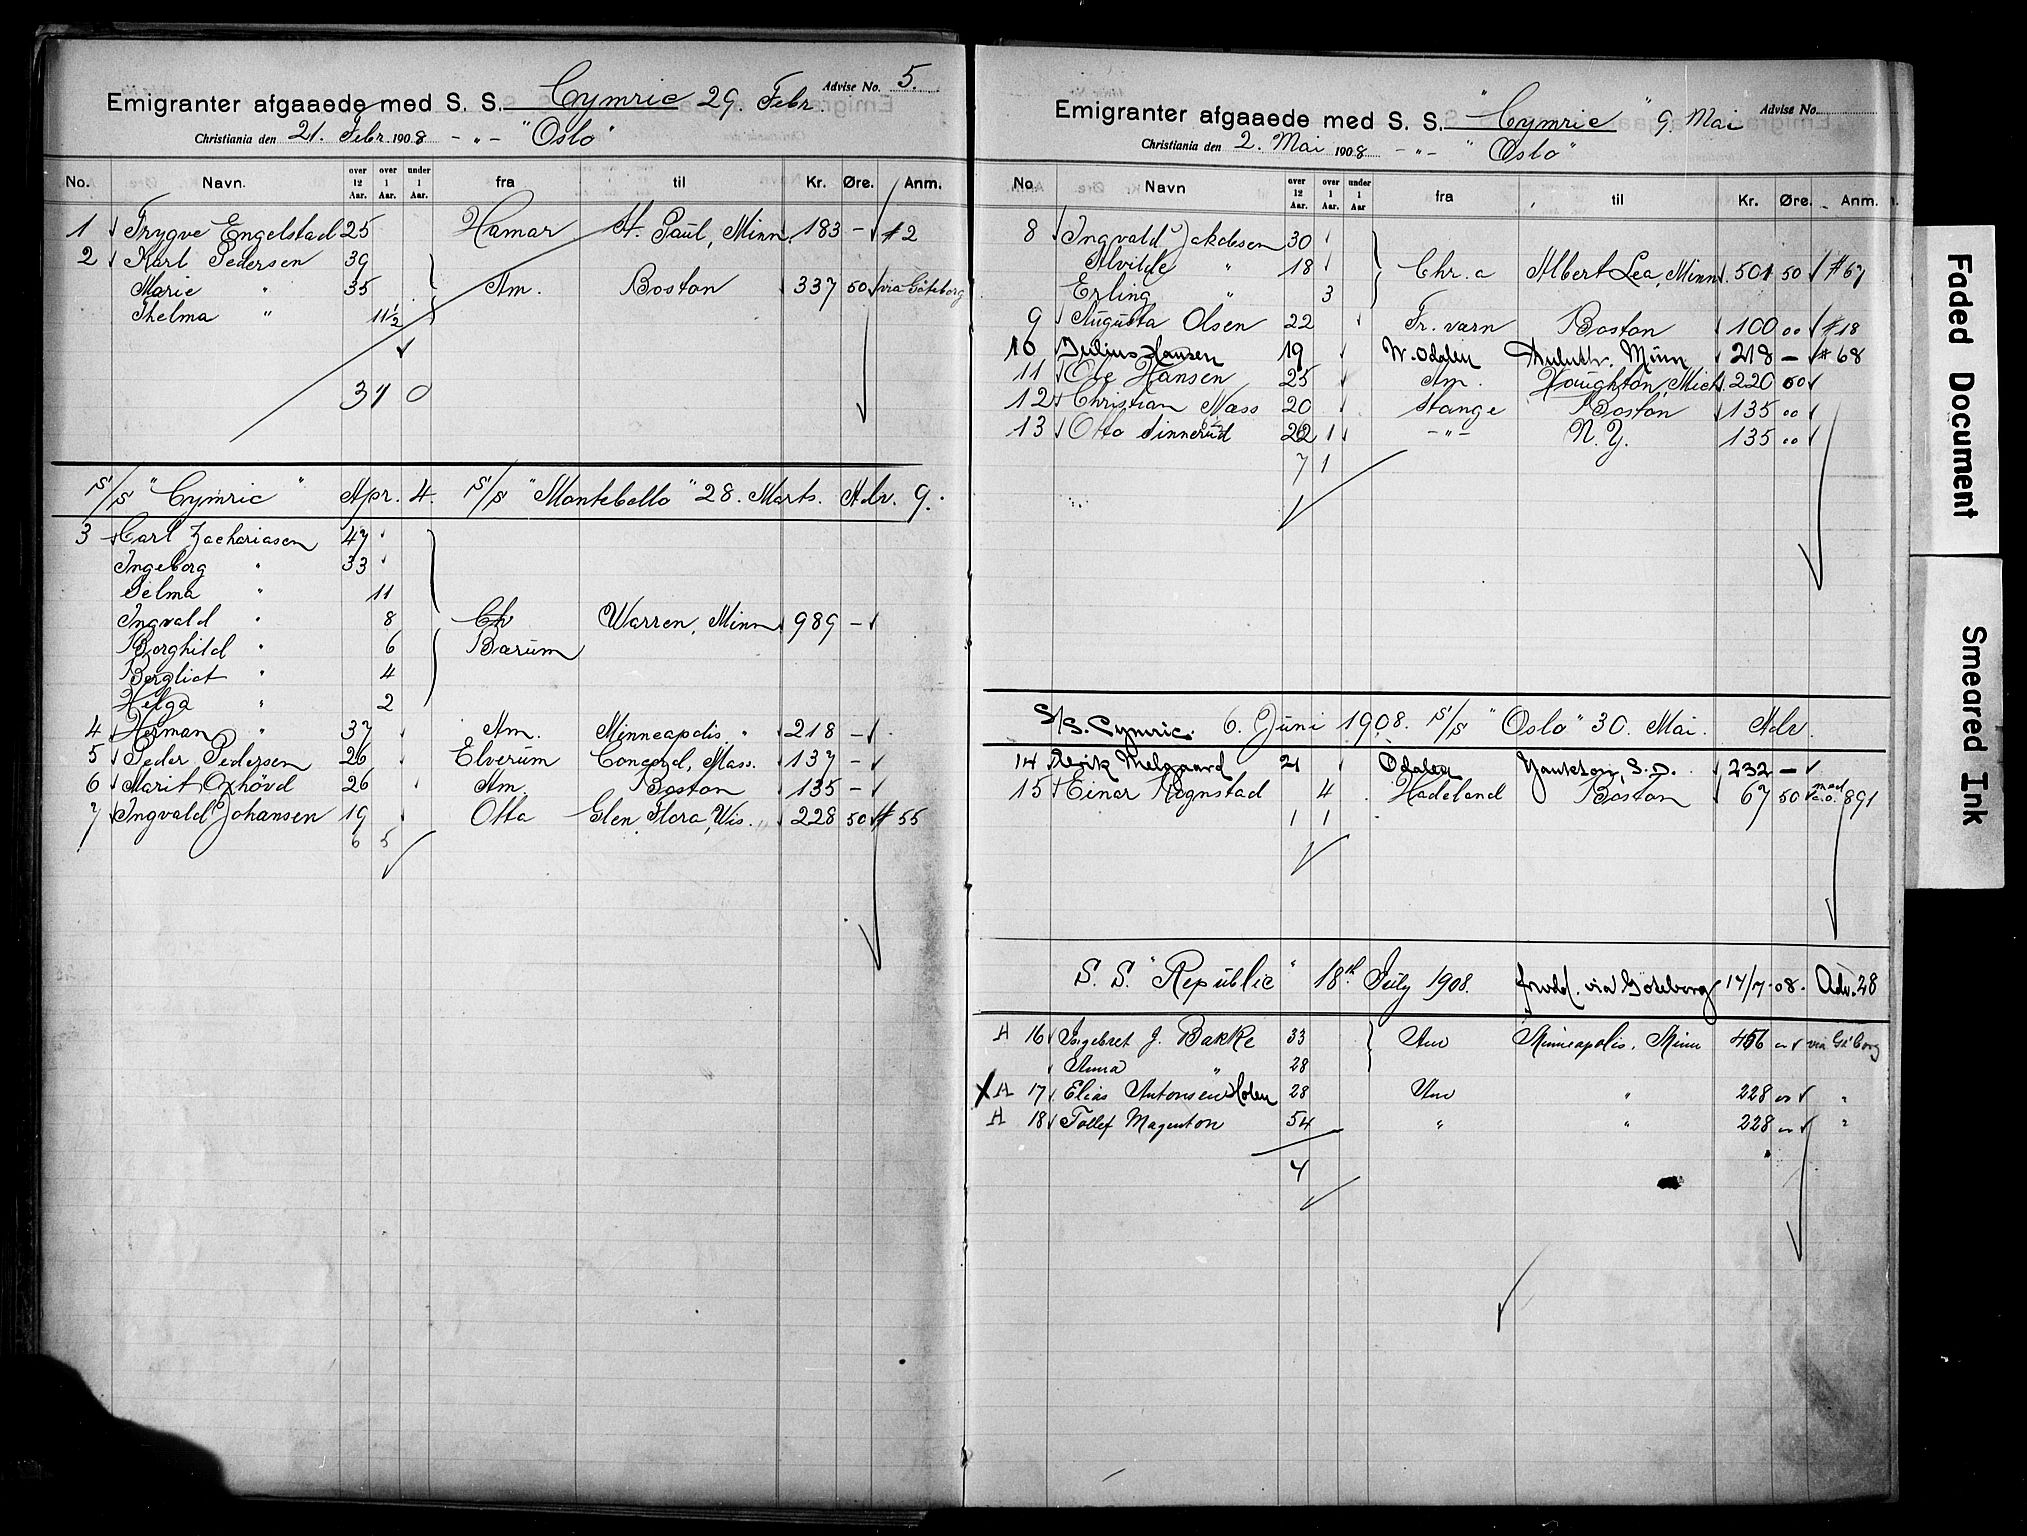 Advise No. 5.
Emigranter afgaaede med S. S. Cymric 29. Febr.
Christiania den 21. Febr. 1908 - „ - "Oslo"
No. Navn. over 12 Aar. over 1 Aar. under 1 Aar. fra til Kr. Øre. Anm.
1 Trygve Engelstad 25 Hamar St. Paul, Minn. 183 - #2
2 Karl Pedersen 39
Marie " 35 Am. Boston 337 50 via Göteborg
Thelma " 11½
3 1 0
S/S "Cymric" Apr. 4. S/S "Montebello" 28. Marts. Adv. 9.
3 Carl Zachariasen 47
Ingeborg " 33
Selma " 11
Ingvald " 8 Ch Warren, Minn 989 -
Borghild " 6 Bærum
Bergliot " 4
Helga " 2
4 Herman " 37 Am. Minneapolis, " 218 -
5 Peder Pedersen 26 Elverum Concord, Mass. 137 -
6 Marit Oxhövd 26 Am. Boston 135 -
7 Ingvald Johansen 19 Otta Glen Flora, Wis. 228 50 # 55
6 5
Emigranter afgaaede med S. S. "Cymric" 9 Mai Advise No.
Christiania den 2. Mai 1908 - „ - "Oslo"
No. Navn over 12 Aar. over 1 Aar. under 1 Aar fra til Kr. Øre. Anm.
8 Ingvald Jakobsen 30
Alvilde " 18 Chr.a Albert Lea, Minn. 501 50 #67
Erling " 3
9 Augusta Olsen 22 Fr. værn Boston 100 00 #18
10 Julius Hansen 19 N. Odalen Duluth, Minn 218 - # 68
11 Ole Hansen 25 Am. Houghton, Mich. 220 00
12 Christian Næss 20 Stange Boston 135 00
13 Otto Sinnerud 22 - „ - N. Y. 135 00
7 1
S/S. Cymric. 6. Juni 1908. S/S "Oslo" 30. Mai. Adv.
14 Melgaard 21 Odalen Yankton, S.D. 232 -
15 Einar Rognstad 4 Hadeland Boston 67 50 med 891
1 1
S. S. "Republic" 18th July 1908. frwdd. via Göteborg 14/7-08. Adv. 28
A 16 Ingebret J. Bakke 33 Am Minneapolis, Minn 456 via Gö'borg
Anna " 28
X A 17 Elias Antonsen Holen 28 Am " 228 "
A 18 Tollef Magnuton 54 " " 228 "
4
Faded Document
Smeared Ink